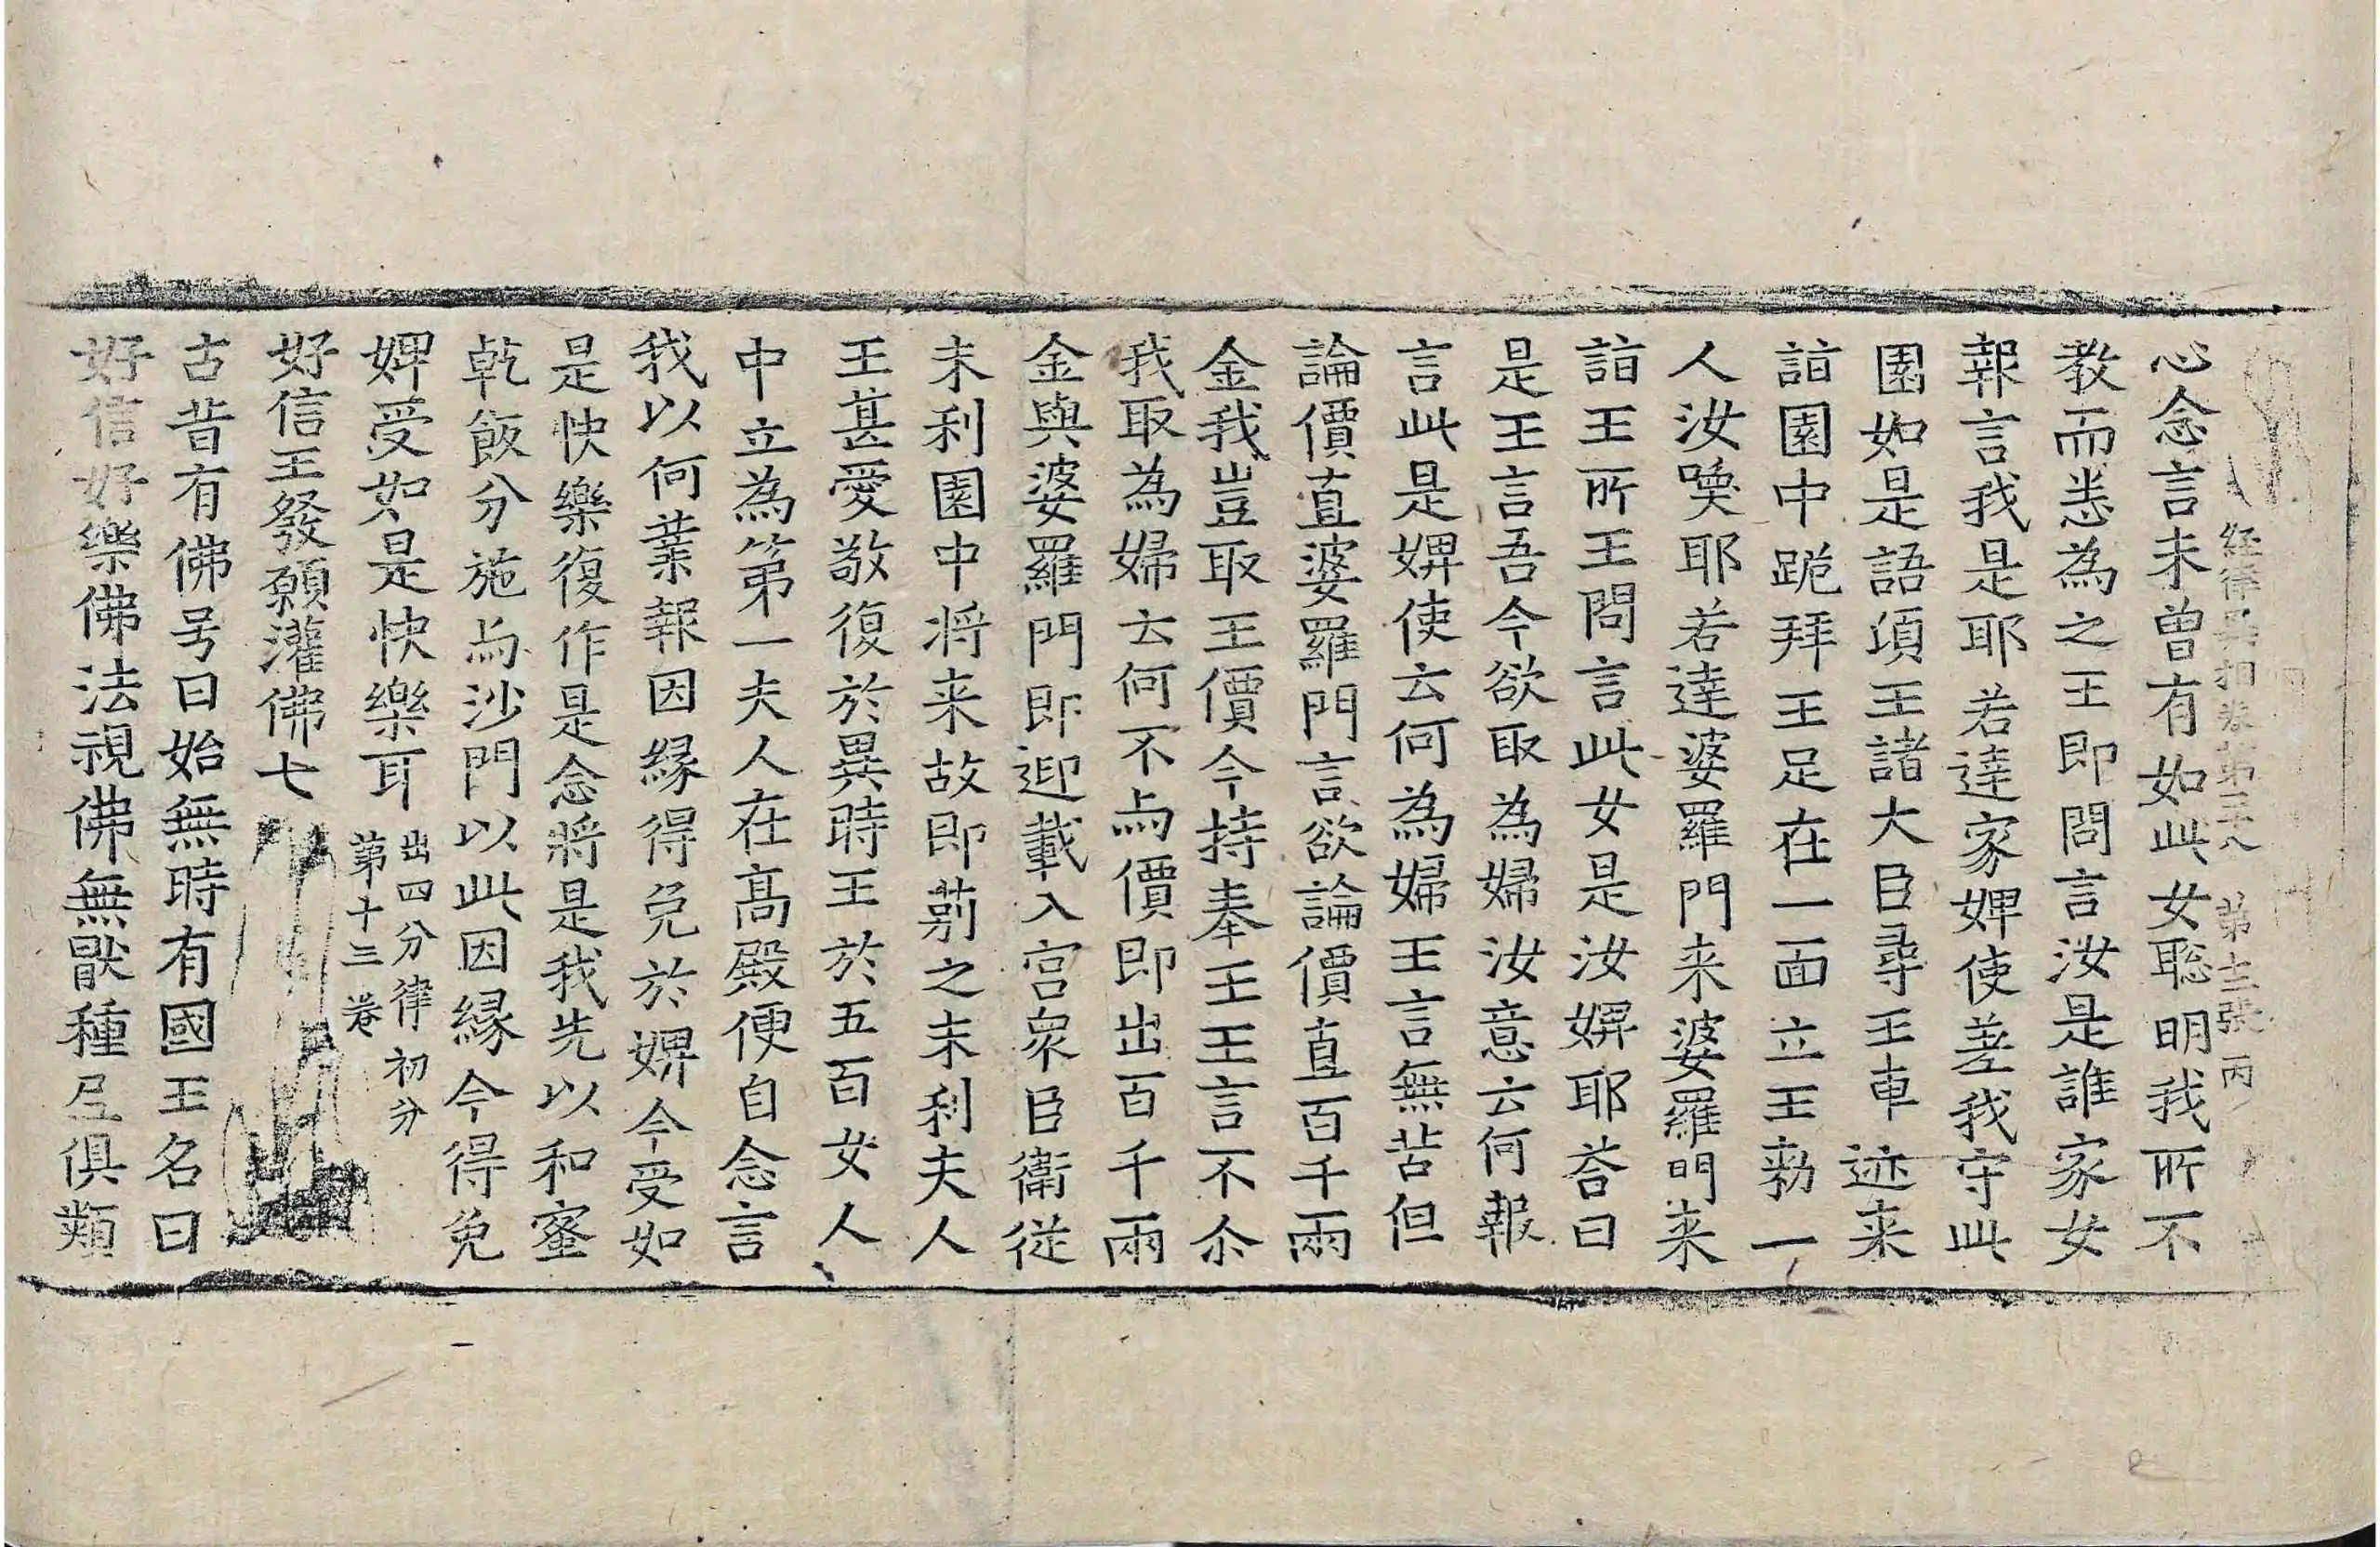 経律異相卷第二十八　第十三張　丙
心念言未曾有如此女聡明我所不
教而悉為之王即問言汝是誰家女
報言我是耶若達家婢使差我守此
園如是語頃王諸大臣尋王車迹来
詣園中跪拜王足在一面立王勑一
人汝喚耶若達婆羅門来婆羅門来
詣王所王問言此女是汝婢耶荅曰
是王言吾今欲取為婦汝意云何報
言此是婢使云何為婦王言無苦但
論價直婆羅門言欲論價直百千兩
金我豈取王價今持奉王王言不尒
我取為婦云何不与價即出百千兩
金與婆羅門即迎載入宫衆臣衛從
末利園中将来故即莂之末利夫人
王甚愛敬復於異時王於五百女人
中立為第一夫人在高殿便自念言
我以何業報因縁得免於婢今受如
是快樂復作是念將是我先以和蜜
乾飯分施与沙門以此因縁今得免
婢受如是快樂耳出四分律初分
第十三卷
好信王發願灌佛七
古昔有佛号曰始無時有國王名曰
好信好樂佛法視佛無猒種𡰱俱類